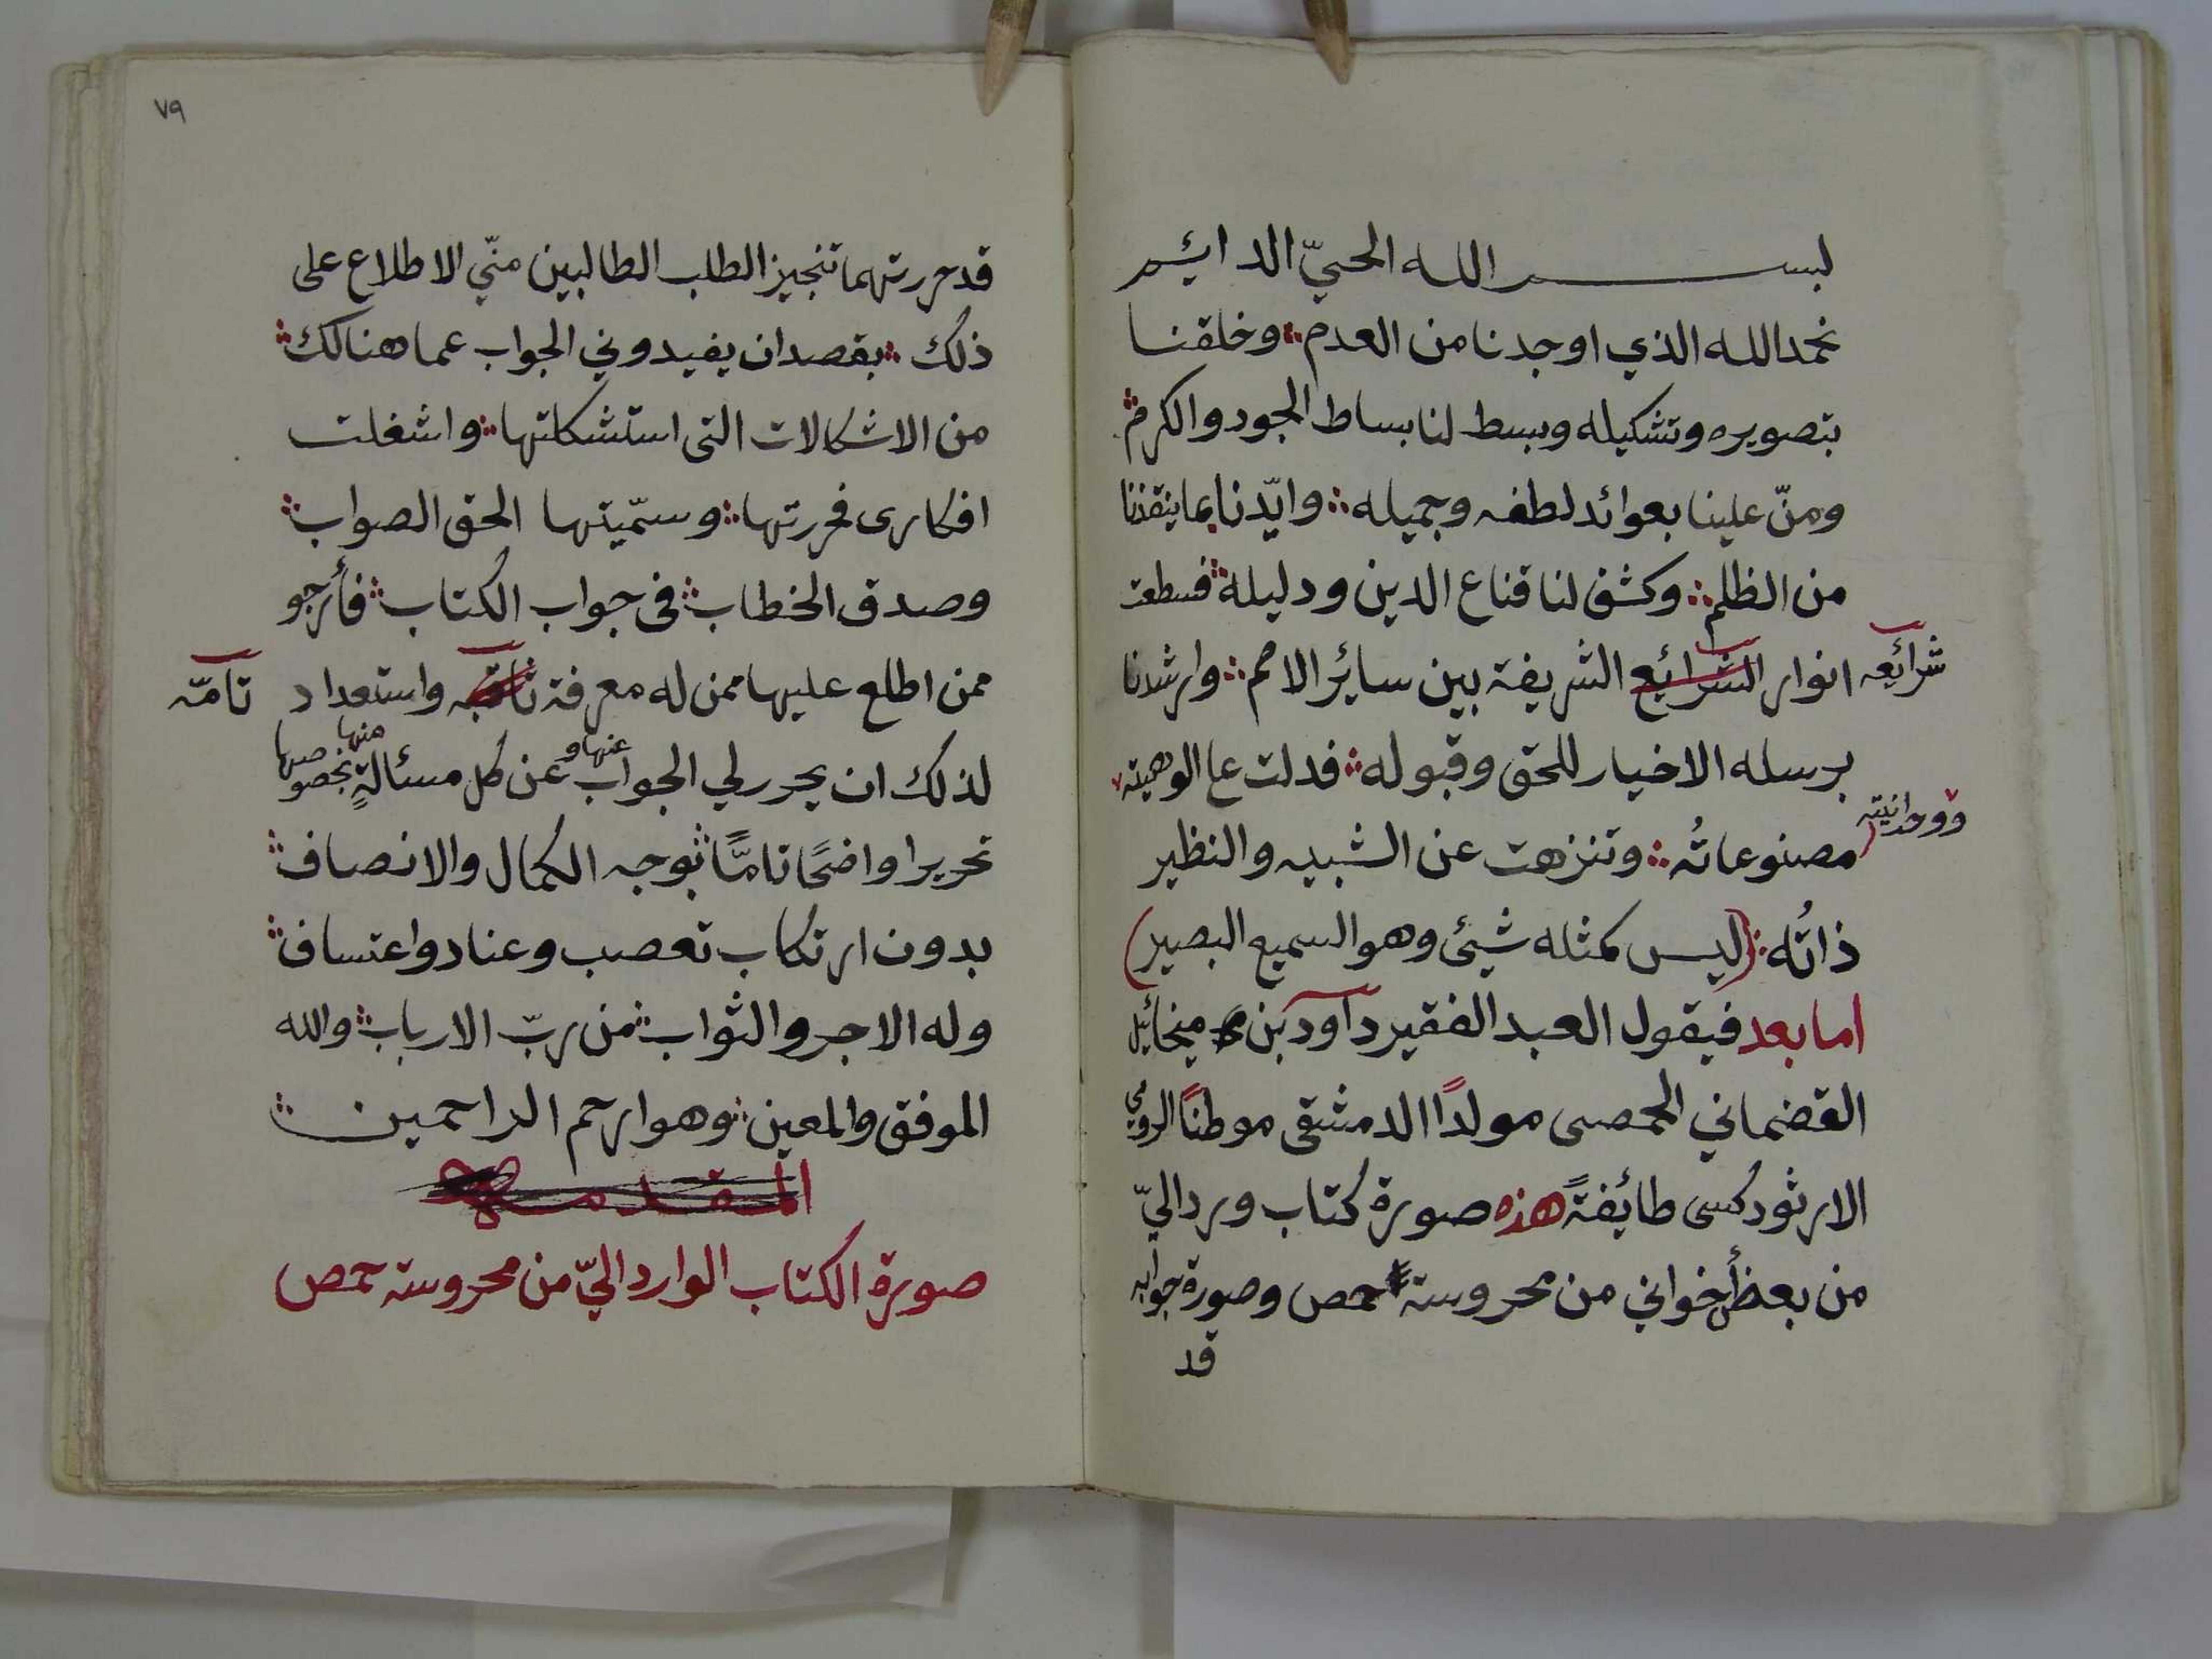 بسم الله الحيّ الدائم
نحمد الله الذي اوجدنا من العدم ؞ وخلقنا
بتصويره وتشكيله وبسط لنا بساط الجود والكرم ؞
ومنّ علينا بعوائد لطفه وجميله ؞ وايّدنا بما ينقذنا
من الظلم ؞ وكشف لنا قناع الدين ودليله ؞ فسطعت
شرائعه
انوار الشرائع الشريفة بين سائر الامم ؞ وارشدنا
برسله الاخيار للحق وقبوله ؞ فدلت عا الوهيته
ووحدانيته
مصنوعاتُه ؞ وتنزهت عن الشبيه والنظير
ذاتُه ؞ (ليس كمثله شيئ وهو السميع البصير)
اما بعد فيقول العبد الفقير داود بن ميخائيل
القضماني الحمصى مولداً الدمشقى موطناً الرومي
الارثودكسى طائفةً هذه صورة كتاب ورد اليّ
من بعض أخواني من محروسة حمص وصورة جوابه
قد
٧٩
قد حررتهما تنجيز الطلب الطالبين منّي الاطلاع على
ذلك ؞ بقصد ان يفيدوني الجواب عما هنالك ؞
من الاشكالات التى استشكلتها ؞ واشغلت
افكارى فحررتها ؞ وسمّيتها الحق الصواب ؞
وصدق الخطاب ؞ فى جواب الكتاب ؞ فأرجو
ممن اطلع عليها ممن له معرفة واستعداد
تامّه
لذلك ان يحرر لي الجواب عنها و عن كل مسئالةٍ منها بخصوصها
تحريرا واضحًا تامًّا ؞ بوجه الكمال والانصاف ؞
بدون ارتكاب تعصب وعناد واعتساف ؞
وله الاجر والثواب ؞ من ربّ الارباب ؞ والله
الموفق والمعين ؞ وهو ارحم الراحمين ؞
المقدمه
صورة الكتاب الوارد اليّ من محروسة حمص